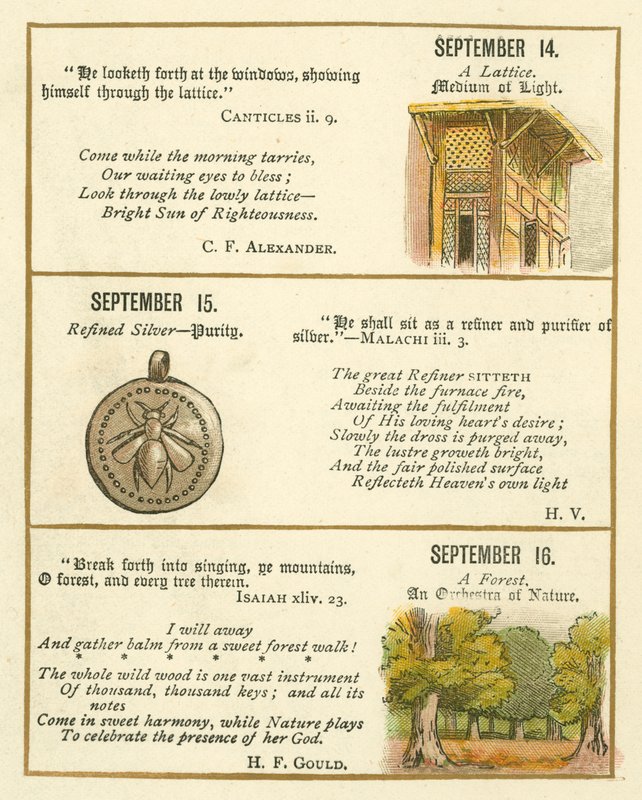 SEPTEMBER 14.
A Lattice.
Medium of Light.
"He looketh forth at the windows, showing
himself through the lattice."
CANTICLES ii. 9.
Come while the morning tarries,
Our waiting eyes to bless;
Look through the lowly lattice—
Bright Sun of Righteousness.
C. F. ALEXANDER.
SEPTEMBER 15.
Refined Silver—Purity.
"He shall sit as a refiner and purifier of
silver."—MALACHI iii. 3.
The great Refiner SITTETH
Beside the furnace fire,
Awaiting the fulfilment
Of His loving heart's desire;
Slowly the dross is purged away,
The lustre groweth bright,
And the fair polished surface
Reflecteth Heaven's own light
H. V.
SEPTEMBER 16.
A Forest.
An Orchestra of Nature.
"Break forth into singing, ye mountains,
O forest, and every tree therein.
ISAIAH xliv. 23.
I will away
And gather balm from a sweet forest walk!
* * * * * *
The whole wild wood is one vast instrument
Of thousand, thousand keys; and all its
notes
Come in sweet harmony, while Nature plays
To celebrate the presence of her God.
H. F. GOULD.